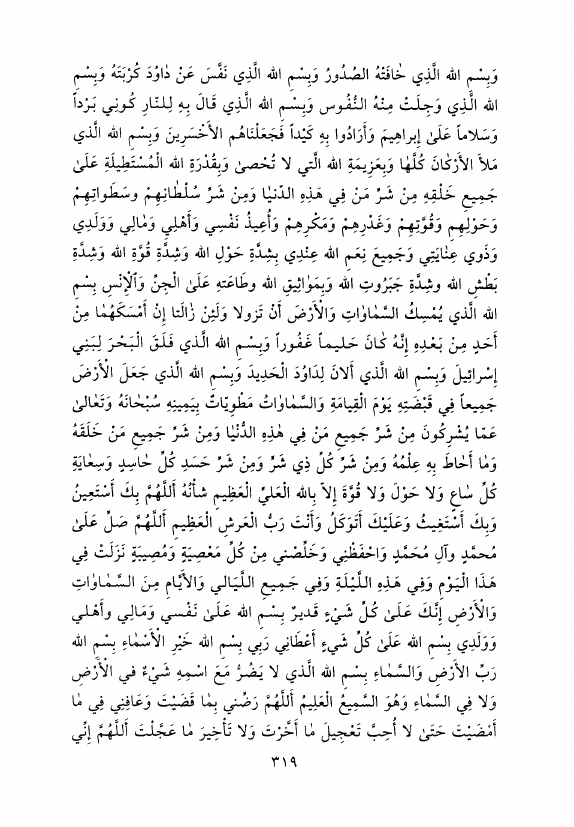 وَبِسْمِ الله الَّذِي خٰافَتْهُ الصُدُورُ وَبِسْمِ الله الَّذِي نَفَّسَ عَنْ دٰاوُدَ كُرْبَتَهُ وَبِسْمِ
الله الَّذِي وَجِلَتْ مِنْهُ النُّفُوس وَبِسْمِ الله الَّذِي قَالَ بِهِ لِلنَّارِ كُونِي بَرْداً
وَسَلاماً عَلَىٰ إبراهِيمَ وَأَرَادُوا بِهِ كَيْداً فَجَعَلْنَاهُم الأَخْسَرِينَ وَبِسْمِ الله الَّذي
مَلأَ الأَرْكٰانَ كُلَّهٰا وَبِعَزِيمَةِ الله الَّتي لا تُحْصىٰ وَبِقُدْرَةِ الله الْمُسْتَطِيلَةِ عَلَىٰ
جَمِيعِ خَلْقِهِ مِنْ شَرِّ مَنْ فِي هَذِهِ الدّنيٰا وَمِنْ شَرِّ سُلْطَانِهِمْ وسَطَواتِهِمْ
وَحَوْلِهِم وَقُوَّتِهِمْ وَغَدْرِهِمْ وَمَكْرِهِمْ وَأُعِيذُ نَفْسِي وَأَهْلِي وَمٰالِي وَوَلَدِي
وَذَوِي عِنٰايَتِي وَجَمِيعَ نِعَمِ الله عِنْدِي بِشِدَّةِ حَوْلِ الله وَشِدَّةِ قُوَّةِ الله وَشِدَّةِ
بَطْشِ الله وشِدَّةِ جَبَرُوتِ الله وَبِمَوٰاثِيقِ الله وطَاعَتِهِ عَلَىٰ الْجِنِّ وَالْإِنْسِ بِسْمِ
الله الَّذي يُمْسِكُ السَّمٰاوَاتِ وَالْأَرْضَ أَنْ تَزولا وَلَئِنْ زٰالَتَا إِنْ أَمْسَكَهُمٰا مِنْ
أَحَدٍ مِنْ بَعْدِهِ إِنَّهُ كٰانَ حَليمـاً غَفُوراً وَبِسْمِ الله الَّذي فَلَقَ الْبَحْرَ لِبَنِي
إِسْرائِيلَ وَبِسْمِ الله الَّذي أَلانَ لِدَاوُدَ الْحَدِيدَ وَبِسْمِ الله الَّذي جَعَلَ الْأَرْضَ
جَمِيعاً فِي قَبْضَتِهِ يَوْمَ الْقِيامَةِ وَالسَّمٰاوَاتُ مَطْوِيّٰاتٌ بِيَمِينِهِ سُبْحٰانَهُ وَتَعٰالىٰ
عَمّٰا يُشْرِكُونَ مِنْ شَرِّ جَمِيعِ مَنْ فِي هٰذِهِ الدُّنْيٰا وَمِنْ شَرِّ جَمِيعِ مَنْ خَلَقَهُ
وَمٰا أَحٰاطَ بِهِ عِلْمُهُ وَمِنْ شَرِّ كُلِّ ذِي شَرٍّ وَمِنْ شَرِّ حَسَدِ كُلِّ حٰاسِدٍ وَسِعٰايَةِ
كُلِّ سٰاعٍ وَلا حَوْلَ وَلا قُوَّةَ إِلاّ بِالله الْعَلِيِّ الْعَظِيمِ شَأْنُهُ أَللَّهُمَّ بِكَ أَسْتَعِينُ
وَبِكَ أَسْتَغِيثُ وَعَلَيْكَ أَتَوَكَلُ وَأَنْتَ رَبُّ الْعَرشِ الْعَظِيمِ أَللَّهُمَّ صَلِّ عَلَىٰ
مُحمَّدٍ وآلِ مُحَمَّدٍ وَاحْفَظْنِي وَخَلِّصْنِي مِنْ كُلِّ مَعْصِيَةٍ وَمُصِيبَةٍ نَزَلَتْ فِي
هَذَا الْيَوْمِ وَفِي هَذِهِ اللَّيْلَةِ وَفِي جَمِيعِ اللَّيَالي وَالأَيَّامِ مِنَ السَّمٰاوَاتِ
وَالْأَرْضِ إِنَّكَ عَلَىٰ كُلِّ شَيْءٍ قَديرٌ بِسْمِ الله عَلَىٰ نَفْسي وَمَالِي وأَهْلي
وَوَلَدِي بِسْمِ الله عَلَىٰ كُلِّ شَيءٍ أَعْطَانِي رَبِي بِسْمِ الله خَيْرِ الْأَسْمَاءِ بِسْمِ الله
رَبِّ الأَرْضِ وَالسَّمَاءِ بِسْمِ الله الَّذي لا يَضُرُّ مَعَ اسْمِهِ شَيْءٌ في الْأَرْضِ
وَلا فِي السَّمٰاءِ وَهُوَ السَّمِيعُ الْعَلِيمُ أَللَّهُمَّ رَضِّني بِمٰا قَضَيْتَ وَعَافِنِي فِي مٰا
أَمْضَيْتَ حَتَىٰ لا أُحِبَّ تَعْجِيلَ مٰا أَخَّرْتَ وَلا تَأْخِيرَ مٰا عَجَّلْتَ أَللَّهُمَّ إِنِّي
٣١٩